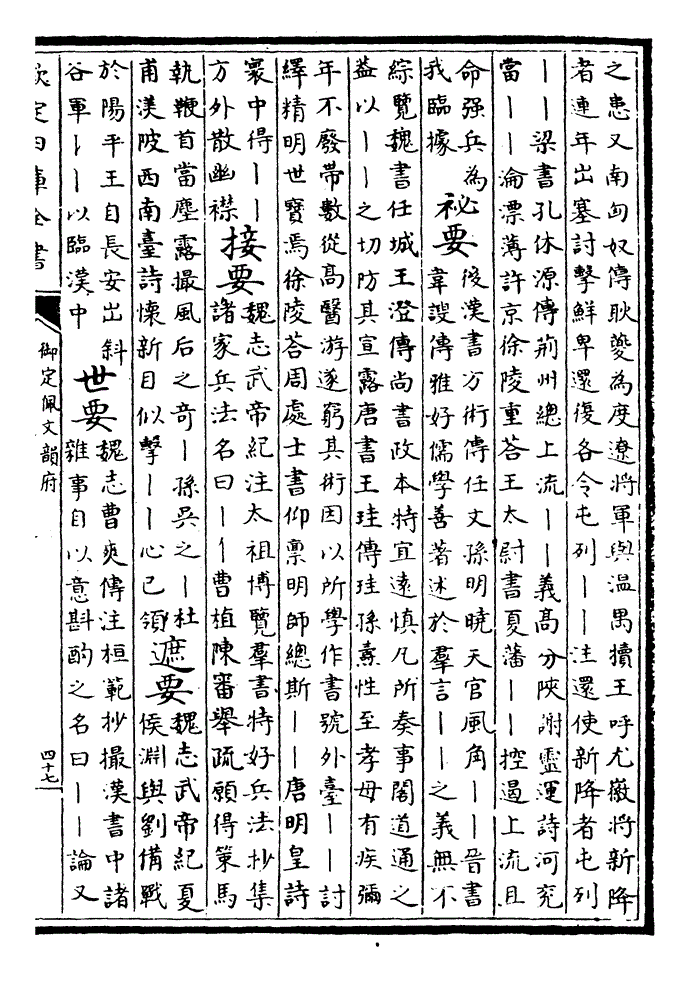 之患又南匈奴傳耿夔為度遼將軍與溫禺犢王呼尤徽將新降
者連年出塞討擊鮮卑還復各令屯列丨丨注還使新降者屯列
丨丨梁書孔休源傳荆州總上流丨丨義高分陝謝靈運詩河兖
當丨丨淪漂薄許京徐陵重荅王太尉書夏藩丨丨控遏上流且
命强兵為
我臨據
祕要
後漢書方術傳任文孫明曉天官風角丨丨晉書
韋謏傳雅好儒學善著述於羣言丨丨之義無不
綜覽魏書任城王澄傳尚書政本特宜遠慎凡所奏事閣道通之
葢以丨丨之切防其宣露唐書王珪傳珪孫燾性至孝母有疾彌
年不廢帶數從髙醫游遂窮其術因以所學作書號外臺丨丨討
繹精明世寳焉徐陵荅周處士書仰稟明師總斯丨丨唐明皇詩
寰中得丨丨
方外散幽襟
接要
魏志武帝紀注太祖博覽羣書特好兵法抄集
諸家兵法名曰丨丨曹植陳審舉疏願得策馬
執鞭首當塵露撮風后之奇丨孫吳之丨杜
甫渼陂西南臺詩懷新目似擊丨丨心已領
遮要
魏志武帝紀夏
侯淵與劉備戰
於陽平王自長安出斜
谷軍丨丨以臨漢中
世要
魏志曹爽傳注桓範抄撮漢書中諸
雜事自以意斟酌之名曰丨丨論又
欽定四庫全書
御定佩文韻府
四十七